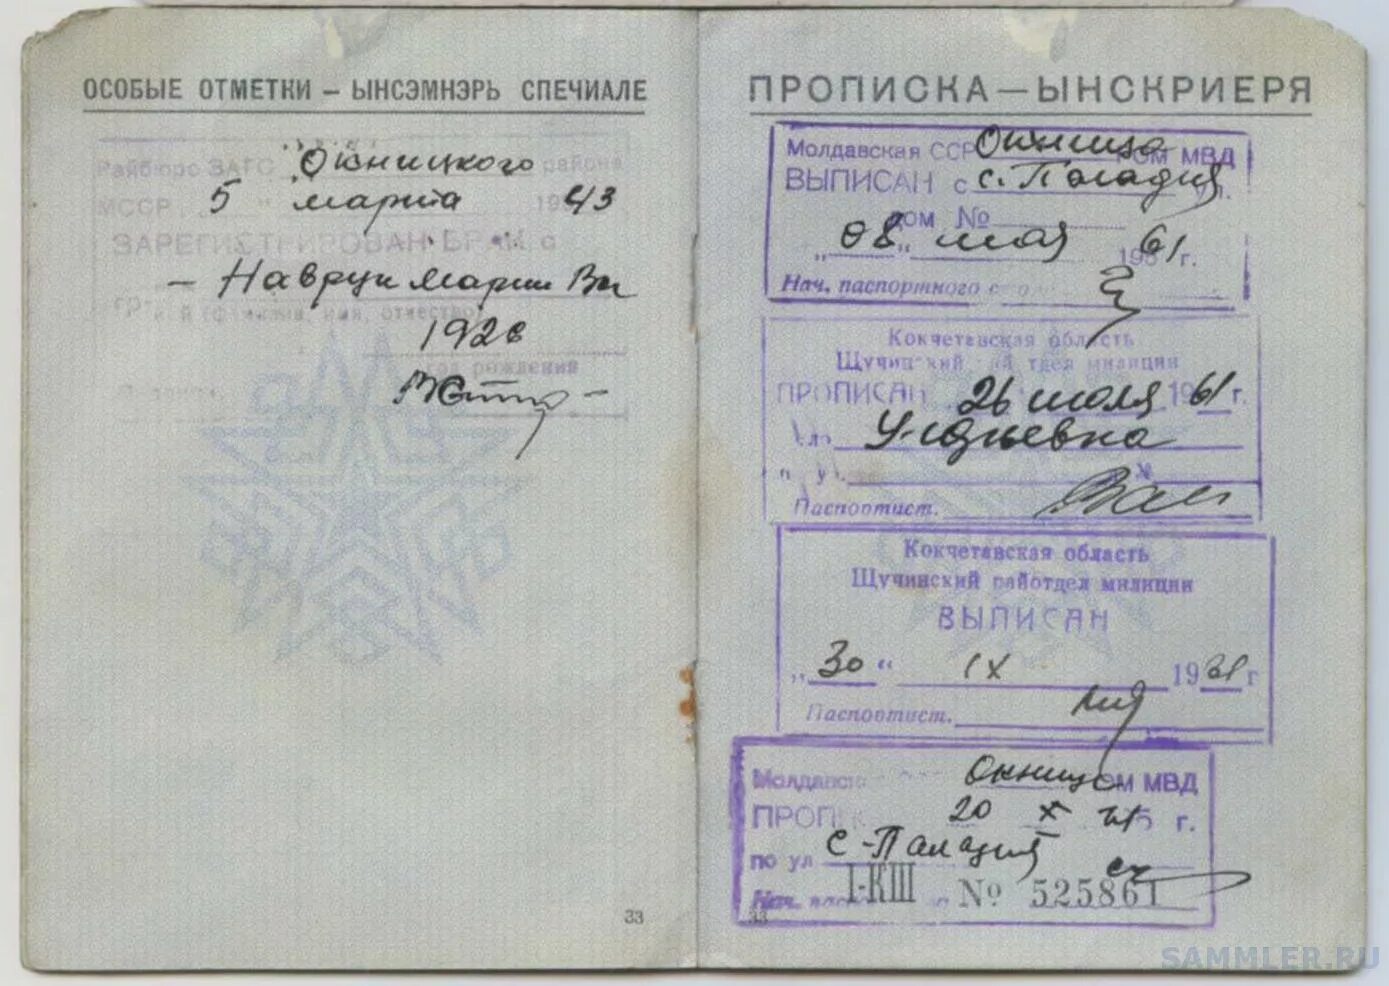 ОСОБЫЕ ОТМЕТКИ – ЫНСЭМНЭРЬ СПЕЧИАЛЕ
Райбюро ЗАГС Окницкого района
МССР „5" марта 1943
ЗАРЕГИСТРИРОВАН БРАК с
гр. – Мария
(фамилия, имя, отчество)
1926
год рождения
33
ПРОПИСКА — ЫНСКРИЕРЯ
Молдавская ССР Окница РОМ МВД
ВЫПИСАН с с. Паладия ул.
дом №
„08" мая 1961 г.
Нач. паспортного стола
Кокчетавская область
Щучинский райотдел милиции
ПРОПИСАН 26 июля 1961 г.
Юрьевка
ул. №
Паспортист.
Кокчетавская область
Щучинский райотдел милиции
ВЫПИСАН
„30" IX 1961 г
Паспортист.
Молдавская Окница РОМ МВД
ПРОПИСАН 20 X г.
по ул С-Паладия
Нач.
I-КШ № 525861
33
SAMMLER.RU